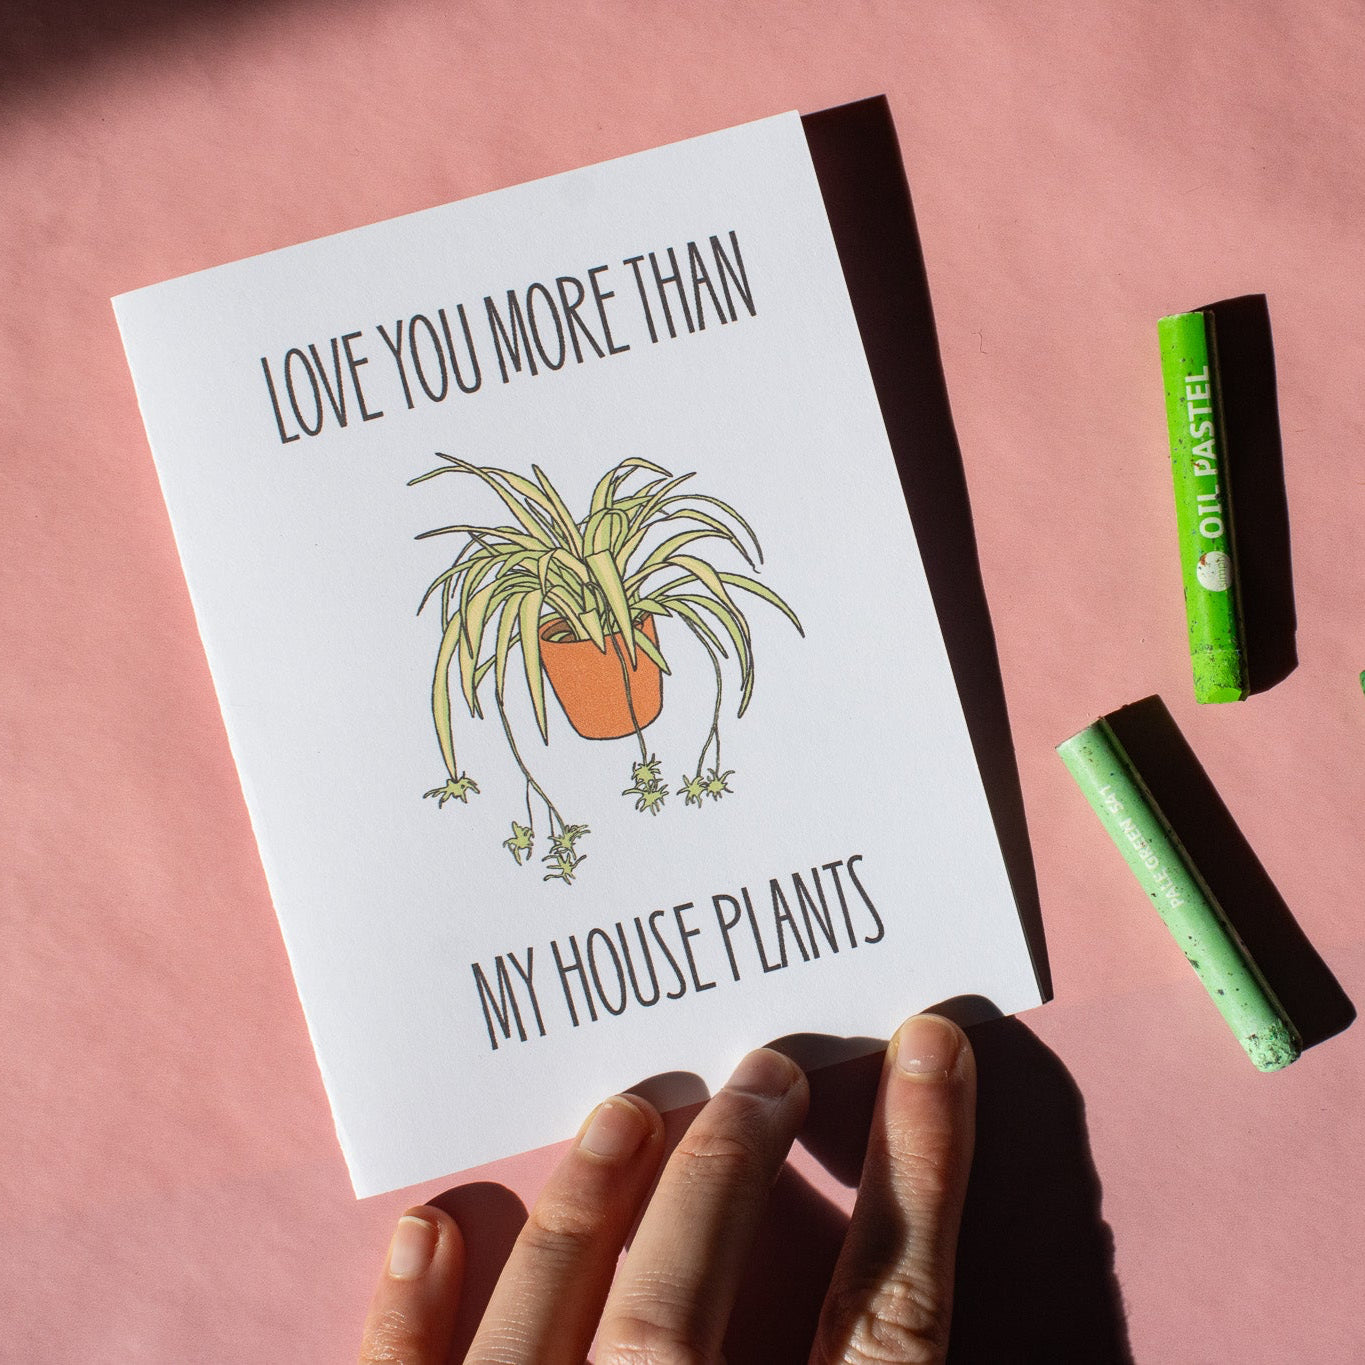 LOVE YOU MORE THAN
MY HOUSE PLANTS
OIL PASTEL
simply
PALE GREEN 541